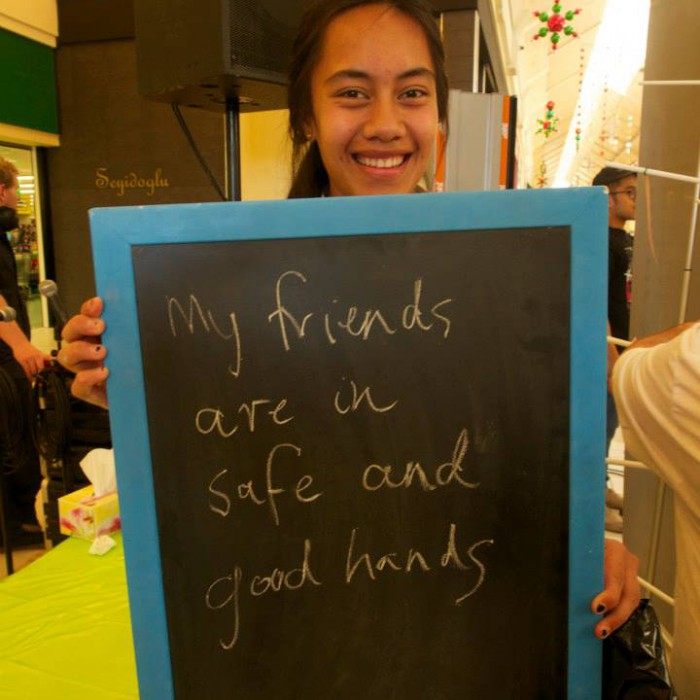 Seyidoglu
My friends
are in
safe and
good hands